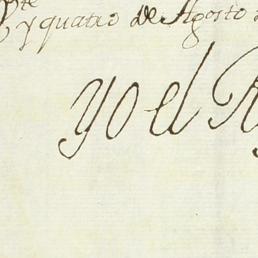 y quatro de Agosto
yo el R